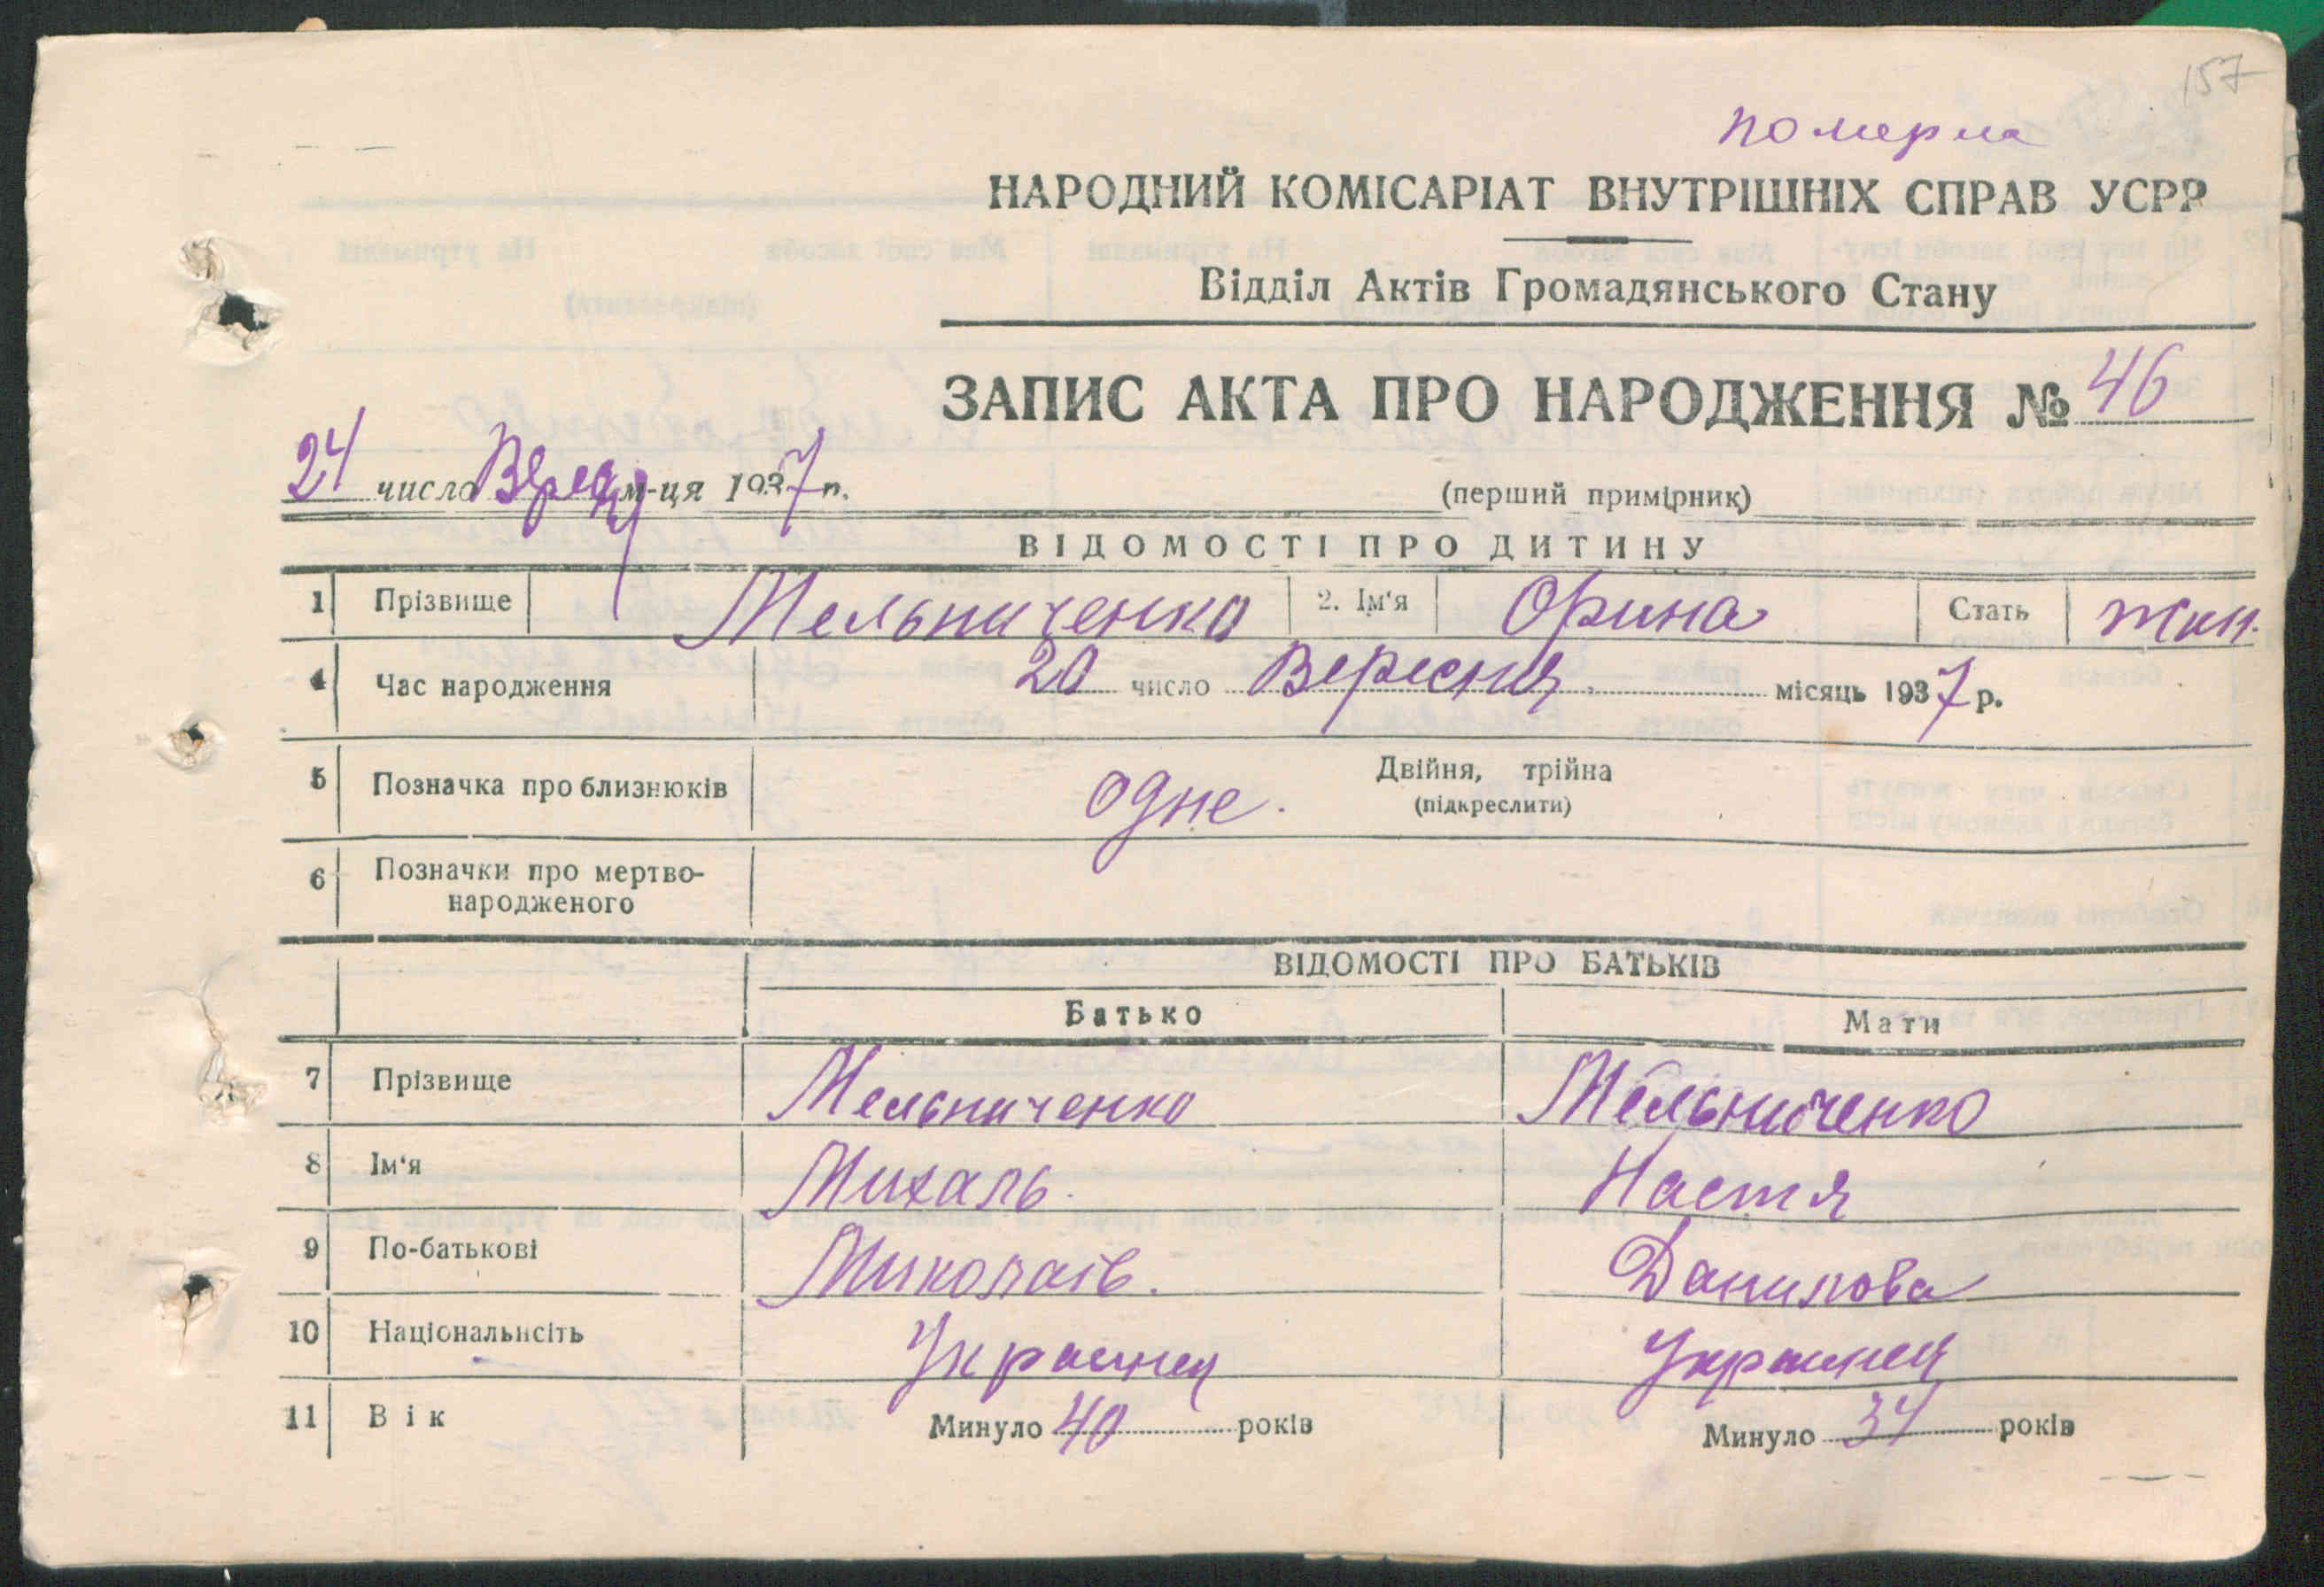 157
померла
НАРОДНИЙ КОМІСАРІАТ ВНУТРІШНІХ СПРАВ УСРР
Відділ Актів Громадянського Стану
ЗАПИС АКТА ПРО НАРОДЖЕННЯ № 46
24 число Вересня м-ця 1937 р.
(перший примірник)
ВІДОМОСТІ ПРО ДИТИНУ
1 Прізвище Мельниченко 2. Ім'я Орина Стать жин.
4 Час народження 20 число Вересня місяць 1937 р.
5 Позначка про близнюків одне. Двійня, трійна
(підкреслити)
6 Позначки про мертво-
народженого
ВІДОМОСТІ ПРО БАТЬКІВ
Батько Мати
7 Прізвище Мельниченко Мельниченко
8 Ім'я Михаль Настя
9 По-батькові Миколаів. Данилова
10 Національнсіть Украинец Украинец
11 Вік Минуло 40 років Минуло 34 років